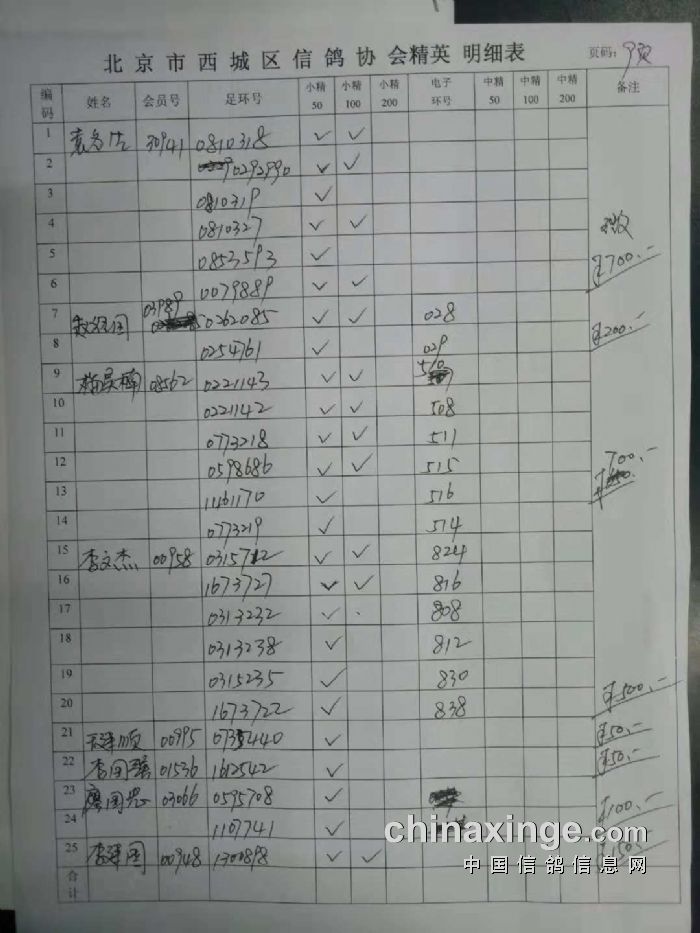 北京市西城区信鸽协会精英 明细表
页码：
编码 姓名 会员号 足环号 小精50 小精100 小精200 电子环号 中精50 中精100 中精200 备注
1 30941 0810318 ✓ ✓
2 0292990 ✓ ✓
3 0810319 ✓
4 0810327 ✓ ✓
5 0853593 ✓ ¥700.-
6 0079889 ✓ ✓
7 03989 0262085 ✓ ✓ 028
8 0254761 ✓ 029 ¥200.-
9 08562 0221143 ✓ ✓ 510
10 0221142 ✓ ✓ 508
11 0773218 ✓ ✓ 511
12 0598686 ✓ ✓ 515 700.-
13 1161170 ✓ 516
14 0773219 ✓ 514
15 李文杰 00958 ✓ ✓ 824
16 1673727 ✓ ✓ 816
17 0313232 ✓ 808
18 0313238 ✓ 812
19 0315235 ✓ 830
20 1673722 ✓ 838 ¥500.-
21 00995 ✓ ¥50.-
22 01536 1612542 ✓ ¥50.-
23 03066 0595708 ✓
24 1107741 ✓ ¥100.-
25 李建国 00948 ✓ ✓ ¥150.-
合计
chinaxinge.com
中国信鸽信息网